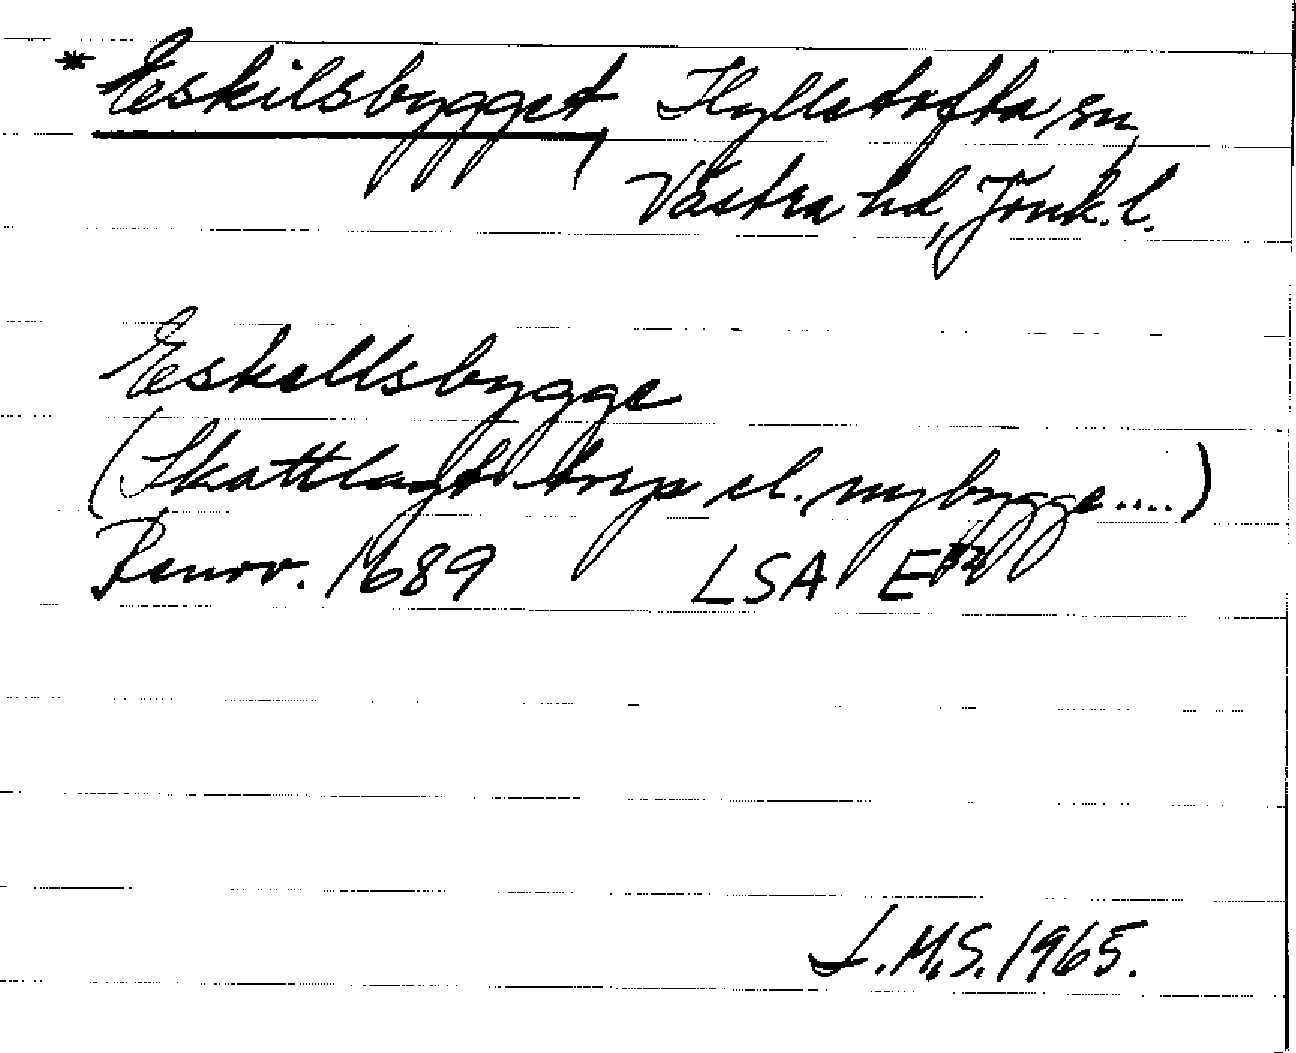 * Eskilsbygget, Hyllstofta sn,
Västra hd, Jönk. l.
Eskellsbygge
(Skattlagt torp el. nybygge....)
Renov. 1689 LSA
M.S. 1965.